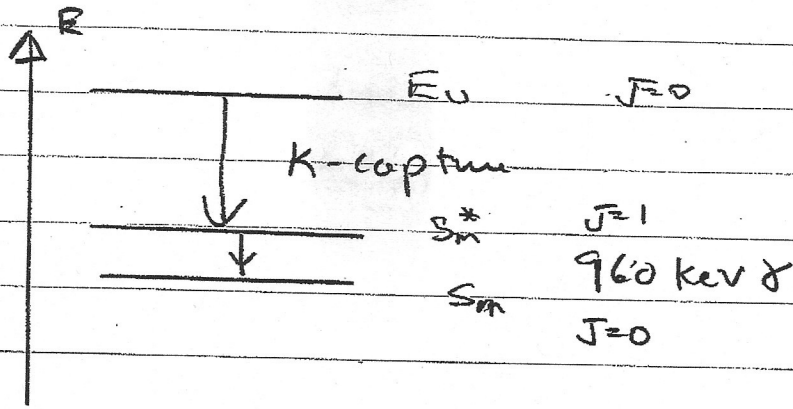 E
Eu J=0
K-capture
Sm* J=1
960 keV γ
Sm
J=0